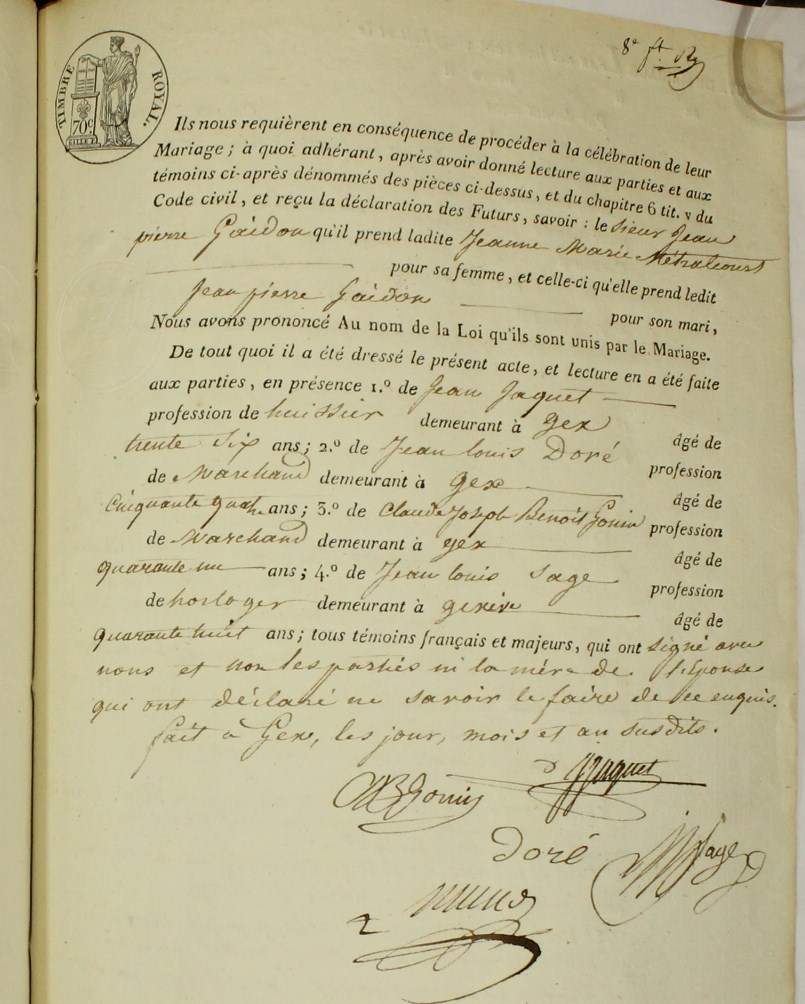 8e ft. Rg
TIMBRE ROYAL.
70c
Ils nous requièrent en conséquence de procéder à la célébration de leur
Mariage; à quoi adhérant, après avoir donné lecture aux parties et aux
témoins ci-après dénommés des pièces ci-dessus, et du chapitre 6 tit. v du
Code civil, et reçu la déclaration des Futurs, savoir : le Sieur Jean
pierre Gaidon qu'il prend ladite Jeanne Marie
pour sa femme, et celle-ci qu'elle prend ledit
Jean pierre Gaidon
pour son mari,
Nous avons prononcé Au nom de la Loi qu'ils sont unis par le Mariage.
De tout quoi il a été dressé le présent acte, et lecture en a été faite
aux parties, en présence 1.º de Jean Jaquet
profession de huissier demeurant à gex âgé de
trente Six ans; 2.º de Jean Louis Doré profession
de Marchand demeurant à gex âgé de
Cinquante quatre ans; 3.º de Claude Joseph Benoit Gonin profession
de Marchand demeurant à gex âgé de
quarante un ans; 4.º de Jean Louis Sage profession
de horloger demeurant à genève âgé de
quarante huit ans; tous témoins français et majeurs, qui ont signé avec
nous et non les parties ni la mére de l'épouse
qui ont déclaré ne savoir le faire de ce enquis.
fait à Gex, les jour, mois et an susdits.
Jaquet
Gonin
Doré
Sage